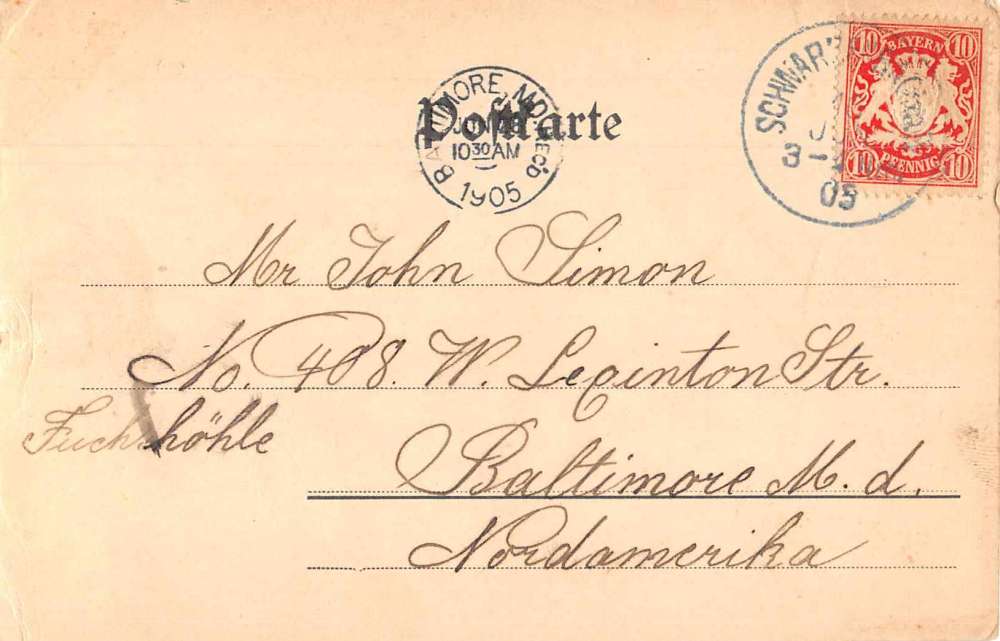 Postkarte
BALTIMORE, MD. REC'D
10 30 AM
1905
SCHWARZ
3-4
05
10 BAYERN 10
10 PFENNIG 10
Mr John Simon
No. 408. W. Lexinton Str.
Fuchshöhle
Baltimore M. d.
Nordamerika